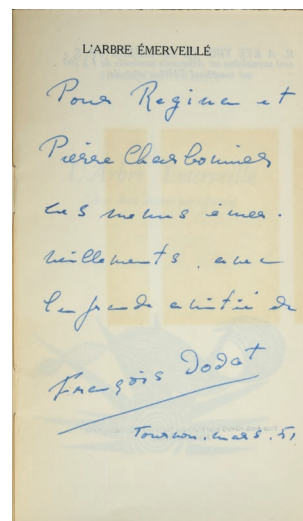 L'ARBRE ÉMERVEILLÉ
Pour Regina et
Pierre Charbonnier
ces menus émer-
veillements, avec
la grande amitié de
François Dodat
Tournon. mars. 51